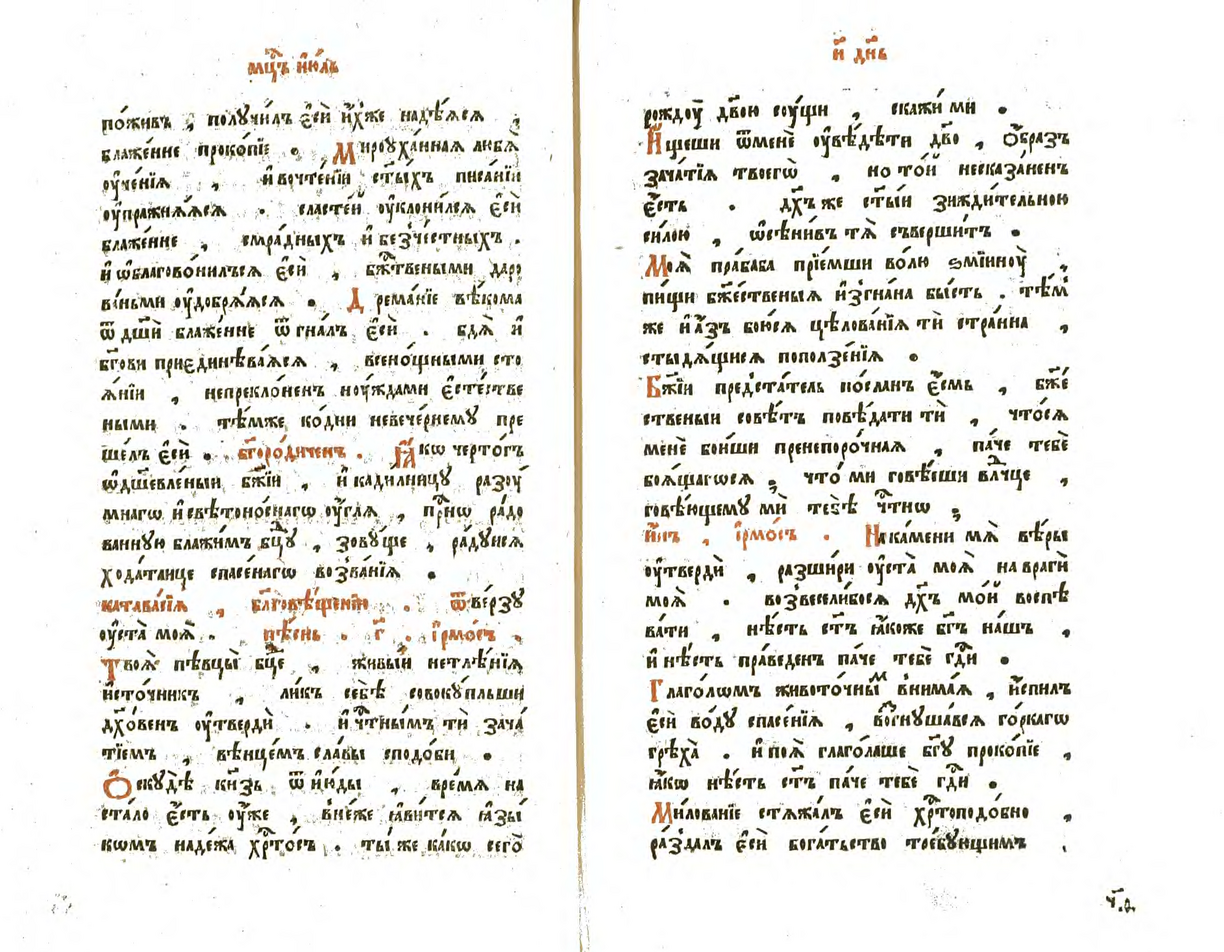 мц҃ъ і҆ю́ль
по́живъ , получи́лъ є҆сѝ и҆́хже надѣ́яся ,
блаже́нне проко́пїе . Мироуха́нная любѧ̀
оу҆че́нїѧ , и҆вочте́нїи ст҃ы́хъ писа́нїи
оу҆пражнѧ́ѧсѧ . сласте́й оу҆клони́лсѧ є҆сѝ
блаже́нне , смра́дныхъ и҆ безче́стныхъ .
и҆ ѡ҆благово́нилъсѧ є҆сѝ , бж҃твеными даро
ва́ньми оу҆добрѧ́ѧсѧ . Дрема́нїе вѣ́кома
ѿ дш҃и блаже́нне ѿгна́лъ є҆сѝ . бдѧ̀ и҆
бг҃ови приєдинѣва́ѧсѧ , всено́щными сто
ѧ́нїи , непрекло́ненъ ноу́ждами є҆сте́стве
ными . тѣ́мже ко́дни невече́рнему пре
ше́лъ є҆сѝ . бг҃оро́диченъ . Ꙗ҆́кѡ черто́гъ
ѡ҆дш҃евле́ныи бж҃їи , и҆ кади́лницу разоу́
мнагѡ и҆ свѣтоно́снагѡ оу҆́глѧ , при́снѡ ра́до
ванную блажи́мъ бц҃у , зову́ще , ра́дуисѧ
хода́таице спасе́нагѡ возва́нїѧ .
катава́сїѧ , бл҃говѣ́щенїю . ѿве́рзу
оу҆ста̀ моѧ̀ . пѣ́снь . г҃ . і҆рмо́съ .
Твоѧ̀ пѣвцы̀ бц҃е , живы́й нетлѣ́нїѧ
и҆сто́чникъ , ли́къ себѣ̀ совоку́пльши
дх҃о́венъ оу҆твердѝ . и҆ чт҃ны́мъ тѝ зача́
тїемъ , вѣнце́мъ сла́вы сподо́би .
Ѻ҆скудѣ̀ кн҃зь ѿ и҆ю́ды , вре́мѧ на
ста́ло є҆́сть оу҆же , внеже ꙗ҆ви́тсѧ ꙗ҆зы́
кѡмъ наде́жа хр҃то́съ . ты́ же ка́кѡ сего̀
и҃ дн҃ь
рождоу̀ дв҃ою соу́щи , скажи́ ми .
И҆́щеши ѿменѐ оу҆вѣ́дѣти дв҃о , ѻ҆́бразъ
зача́тїѧ твоегѡ̀ , но то́й несказа́ненъ
є҆́сть . дх҃ъ же ст҃ы́и зижди́тельною
си́лою , ѡ҆сѣни́въ тѧ̀ съверши́тъ .
Моѧ̀ праба́ба прїе́мши во́лю ѕмїи́ноу ,
пи́щи бж҃е́ственыѧ и҆згна́на бы́сть . тѣ́м
же и҆ а҆́зъ бою́сѧ цѣлова́нїѧ тѝ стра́нна ,
стыдѧ́щисѧ поползе́нїѧ .
Бж҃їи предста́тель по́сланъ є҆́смь , бж҃е́
ственыи совѣ́тъ повѣ́дати тѝ , что́сѧ
менѐ бои́ши пренепоро́чнаѧ , па́че тебѐ
боѧ́щагѡсѧ ; что́ ми говѣ́еши вл҃чце ,
говѣ́ющему мѝ тебѣ̀ чт҃нѡ ;
и҆́нъ , і҆рмо́съ . На ка́мени мѧ̀ вѣ́ры
оу҆твердѝ , разшири оу҆ста̀ моѧ̀ на врагѝ
моѧ̀ . возвесели́босѧ дх҃ъ мо́й воспѣ
ва́ти , нѣ́сть ст҃ъ ꙗ҆́коже бг҃ъ на́шъ ,
и҆ нѣ́сть пра́веденъ па́че тебѐ гд҃и .
Глаго́лѡмъ животочны́м внима́ѧ , и҆спи́лъ
є҆сѝ во́ду спасе́нїѧ , возгнуша́всѧ го́ркагѡ
грѣха̀ . и҆ поѧ̀ глаго́лаше бг҃у проко́пїе ,
ꙗ҆́кѡ нѣ́сть ст҃ъ па́че тебѐ гд҃и .
Ми́лованїе стѧжа́лъ є҆сѝ хр҃топодо́бно ,
разда́лъ є҆сѝ бога́тьство тре́бующимъ